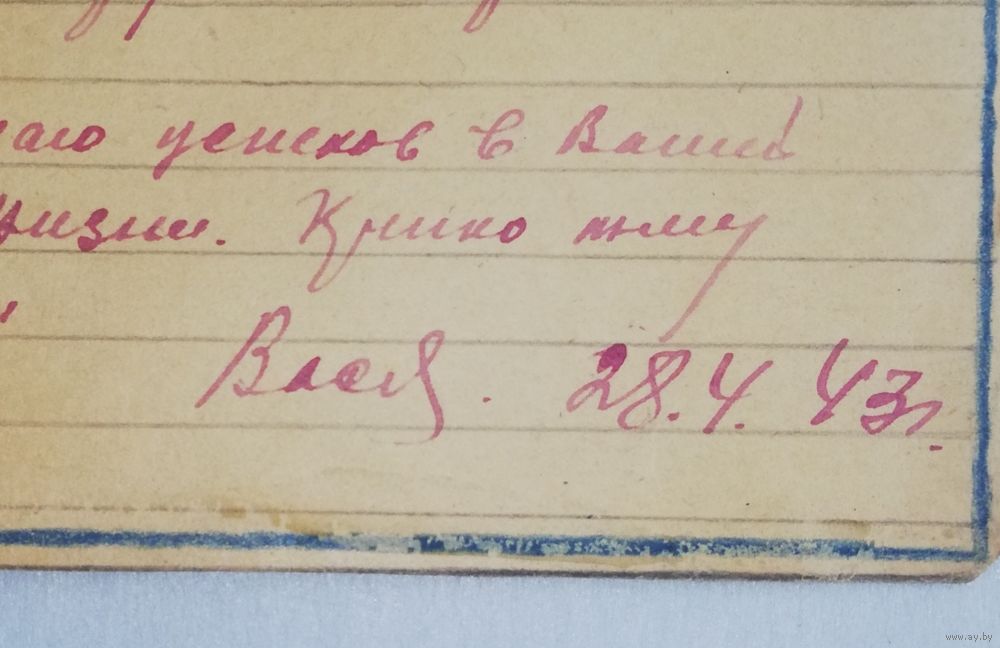 лаю успехов в Вашей
жизни. Крепко жму
Вася. 28.4.43г.
www.ay.by